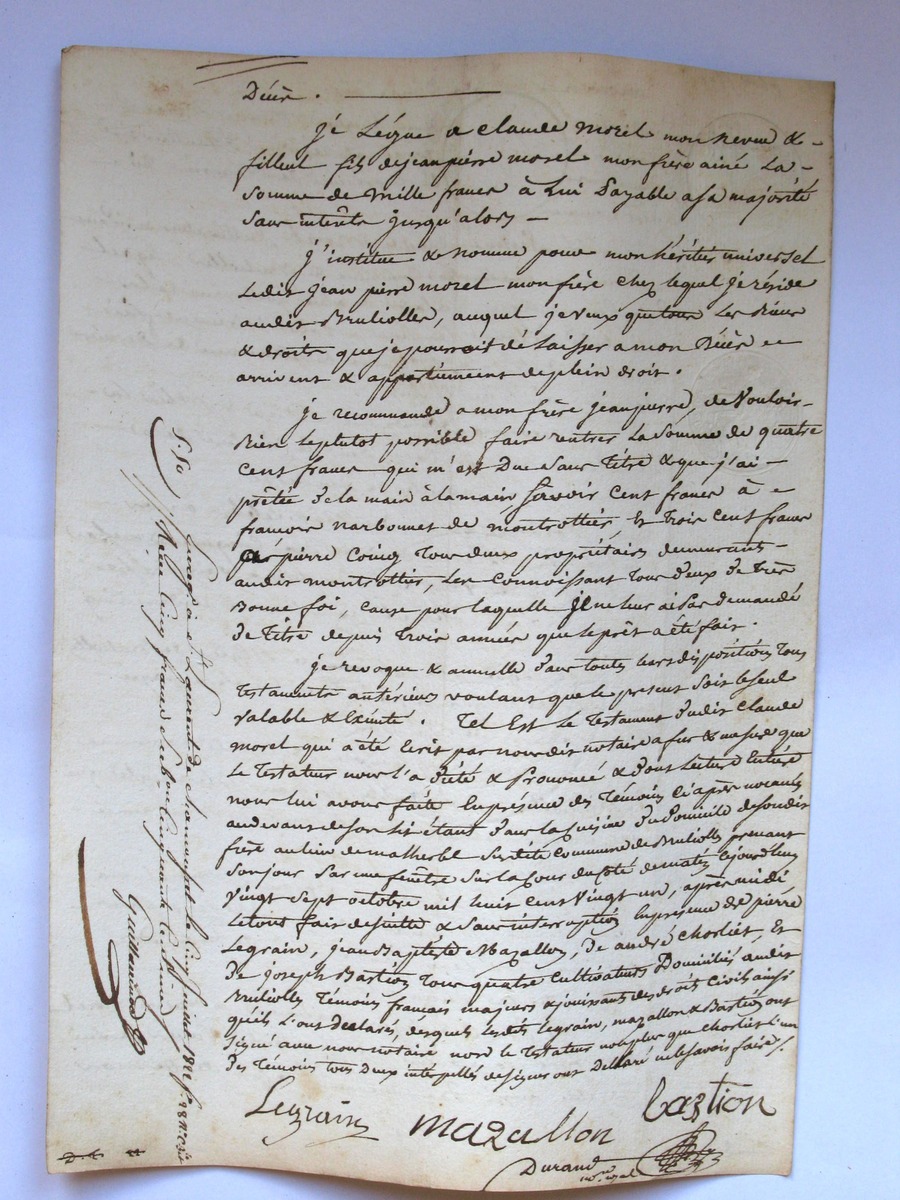 Décès.
je Légue a claude morel mon neveu &
filleul fils de jean pierre morel mon frère ainé La
Somme de mille francs à Lui Payable a Sa majorité
Sans intérêts jusqu'alors
j'institue & nomme pour mon héritier universel
Ledit jean pierre morel mon frère chez lequel je réside
audit Brullioles, auquel je veux que tous Les Biens
& droits que je pourrait délaisser a mon Décès
arrivent & appartiennent de plein droit.
je recommande a mon frère jean pierre, de Vouloir
Bien Le plutot possible faire rentrer La Somme de quatre
Cent francs qui m'est Due Sans Titre & que j'ai
prêtée de la main à la main Savoir Cent francs à
françois narbonnet de montrottier, Et Trois Cent francs
a pierre Coing Tous deux propriétaires demeurants
audit montrottier, Les Connoissant Tous deux de Très
Bonne foi, Cause pour laquelle je ne leur ai Pas demandé
de Titre depuis Trois années que le prêt a été fait.
je revoque & annulle dans toutes leurs dispositions Tous
Testaments antérieurs voulant que le present Soit le Seul
Valable & Exécuté. Tel Est Le Testament dudit Claude
morel qui a été Ecrit par nous dit notaire a fur & mesure que
Le Testateur nous l'a Dicté & Prononcé & dont Lecture Entière
nous lui avons faite En présence des Témoins Ci après nommés
au devant de Son lit étant dans La Cuisine du Domicile de Sondit
frère au lieu de malherbe Susdite Commune de Brullioles prenant
Son jour Par une fenêtre Sur la Cour du Côté de matin Cejourd'hui
Vingt Sept octobre mil huit Cent Vingt un, après midi
Le tout fait de Suite & Sans interruption En présence de pierre
Legrain, jean Baptiste Mazallon, de andré Chorliet, Et
De Joseph Bastion Tous quatre Cultivateurs Domiciliés audit
Brullioles Témoins français majeurs & jouissant des droits Civils ainsi
qu'ils L'ont Declarés, desquels Lesdits Legrain, mazallon & Bastion ont
Signé avec nous notaire non Le Testateur non plus que Chorliet L'un
Des Témoins tous Deux interpellés de Signer ont Déclaré ne le Savoir faire.
Legrain mazallon bastion
Durand
not. royal
Enregé à St Laurent de Chamousset le Cinq juillet 1822 f.
Reçu Cinq francs Subvon Cinquante Centimes
Guillermard